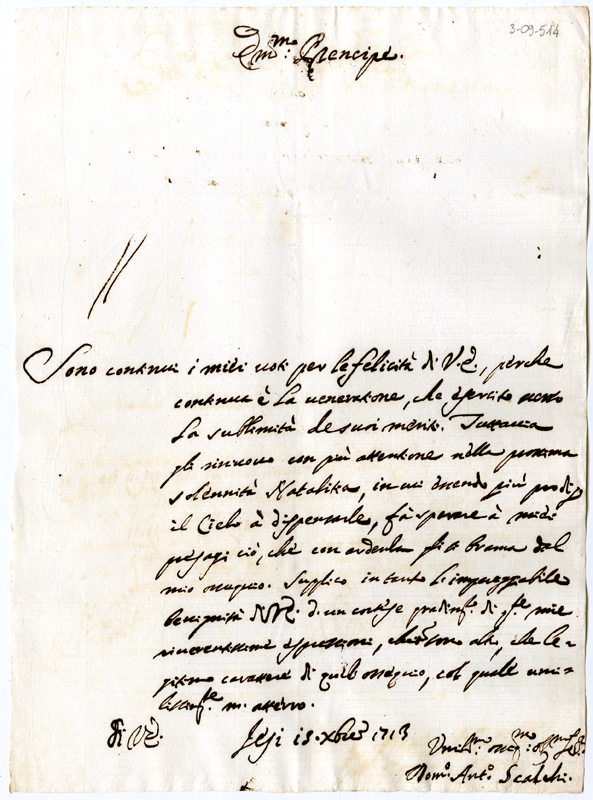 3-09-514
Em.mo Prencipe.
Sono continui i miei uoti per le felicità di V.E., perche
continua è la ueneratione, che esercito uerso
la sublimità de suoi meriti. Tuttauia
gli rinuouo con più attentione nella prossima
solennità Natalitia, in cui essendo più prodigo
il Cielo à dispensarle, fà sperare à miei
presagi ciò, che con ardenza si brama dal
mio ossequio. Supplico in tanto l'impareggiabile
benignità di V.E. d'un cortese gradim.to di q.te mie
riuerentissime espressioni, che son altro, che le-
gitimo carattere di quell'ossequio, col quale umi-
lissim.te m'atterro.
Di V.E.
Jesi 15. Xbre 1713
Umil.mo
Dom.o Ant.o Scalchi.